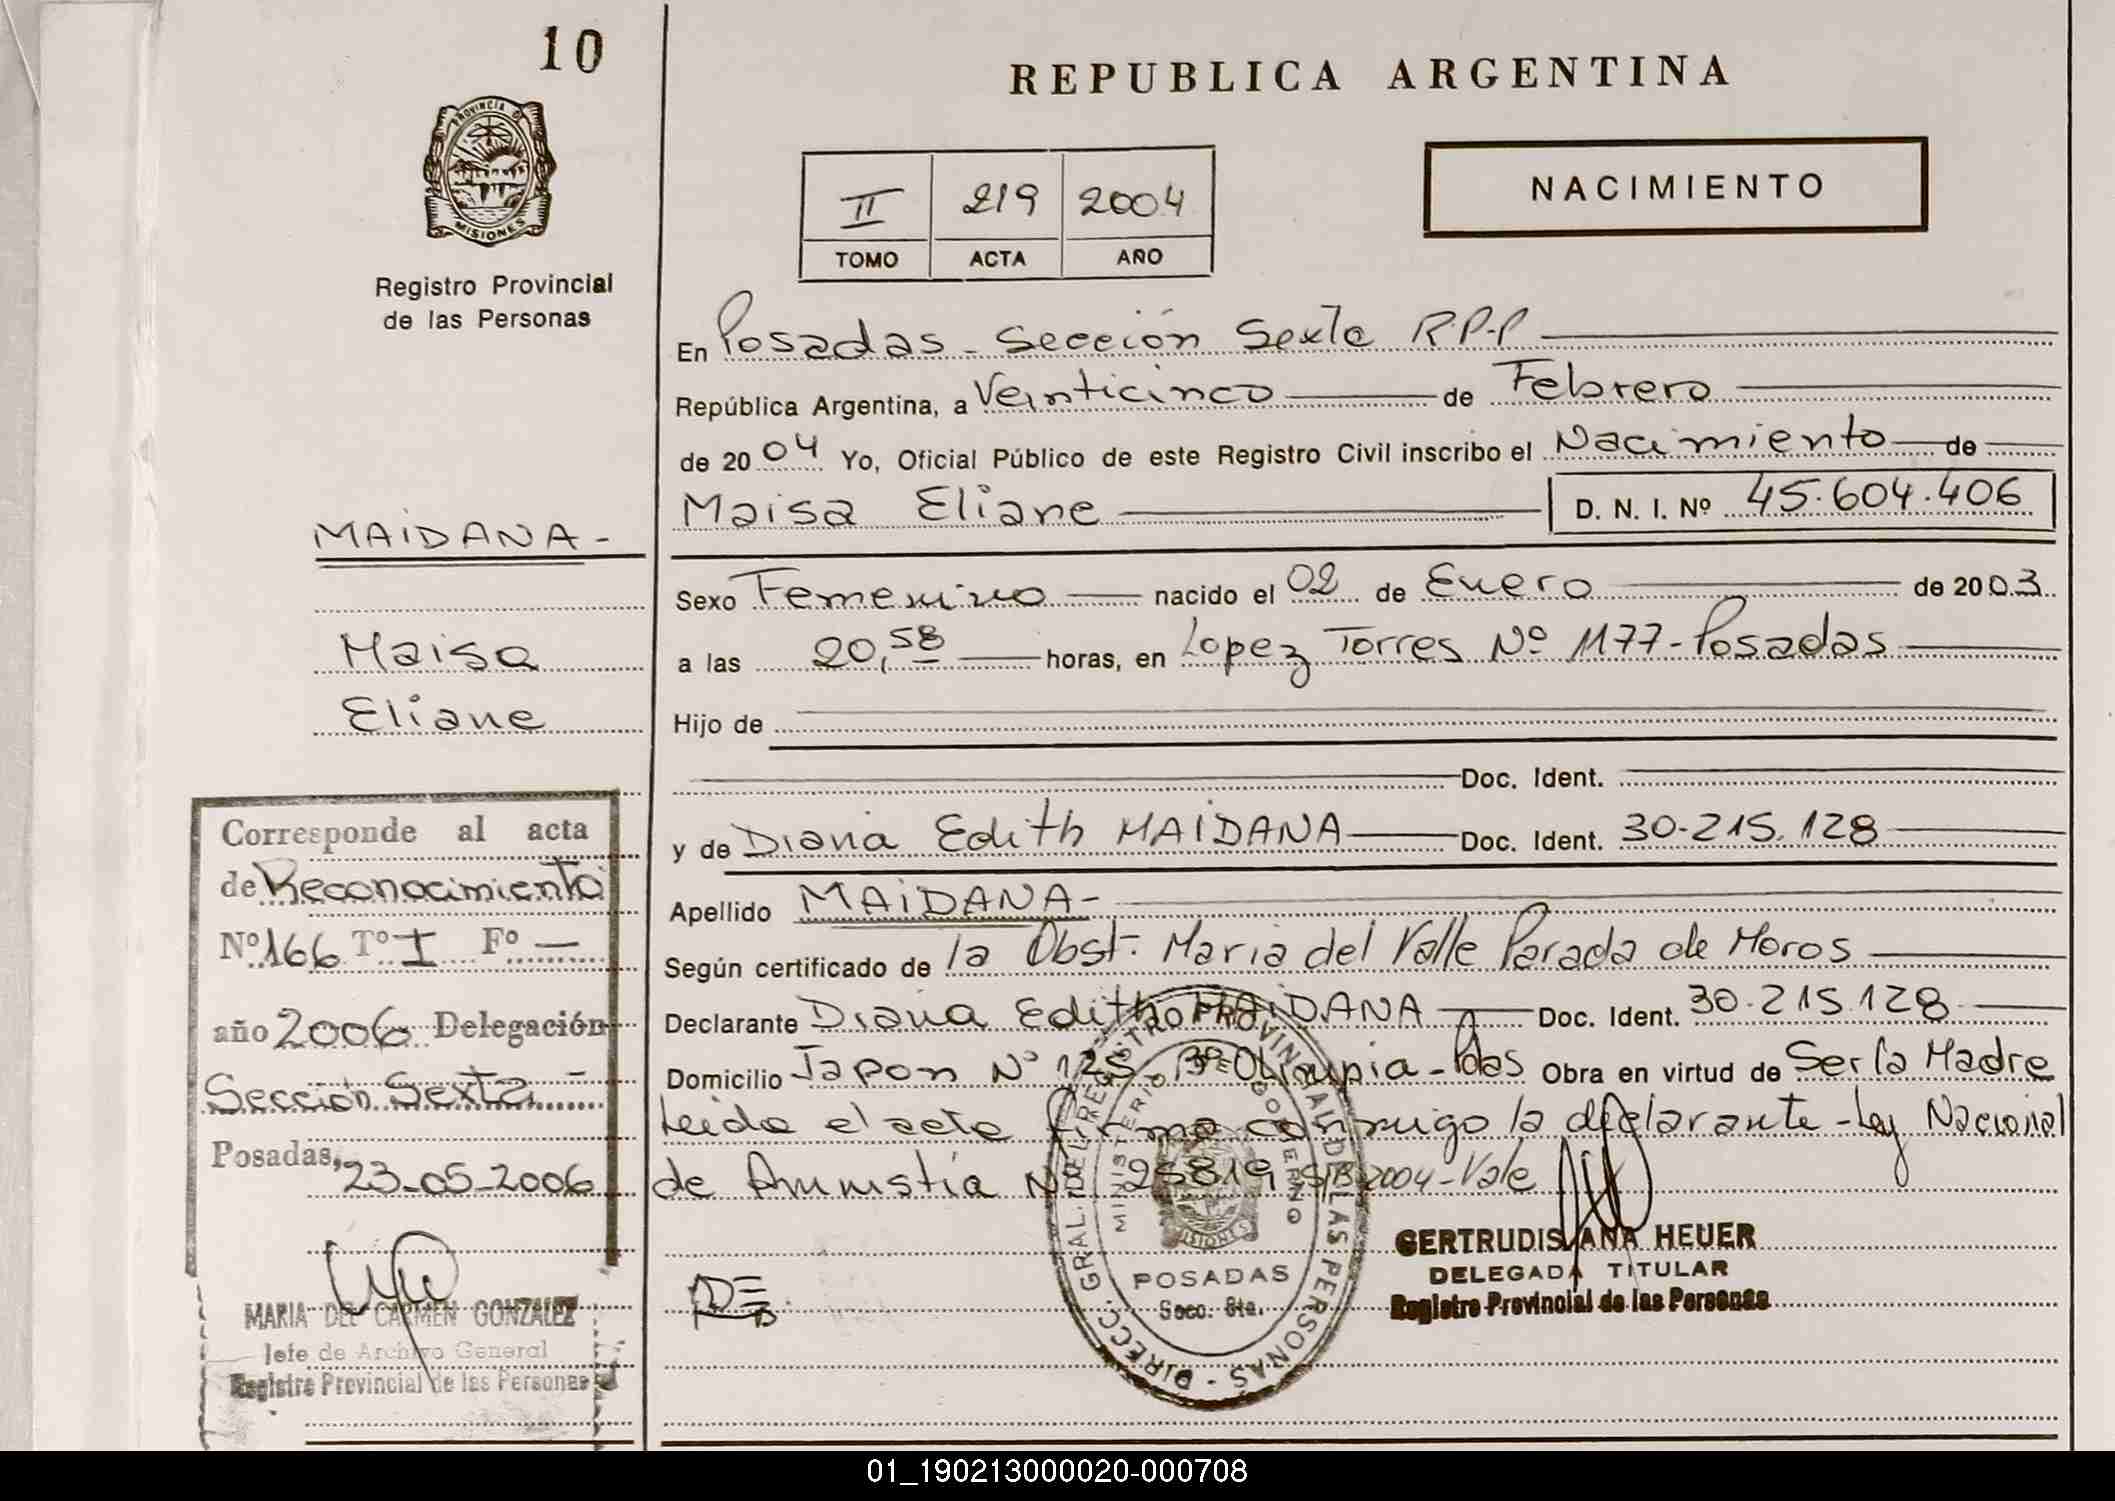 10
PROVINCIA DE
MISIONES
Registro Provincial
de las Personas
REPUBLICA ARGENTINA
II 219 2004
TOMO ACTA AÑO
NACIMIENTO
En Posadas - Sección Sexta R.P.P
República Argentina, a Veinticinco de Febrero
de 2004 Yo, Oficial Público de este Registro Civil inscribo el Nacimiento de
Maisa Eliane D. N. I. Nº 45.604.406
MAIDANA-
Maisa
Eliane
Sexo Femenino nacido el 02 de Enero de 2003
a las 20,58 horas, en Lopez Torres Nº 1177 - Posadas
Hijo de
Doc. Ident.
y de Diana Edith MAIDANA Doc. Ident. 30.215.128
Apellido MAIDANA-
Según certificado de la Obst. Maria del Valle Parada de Moros
Declarante Diana Edith MAIDANA Doc. Ident. 30.215.128
Domicilio Japon Nº 125 Bº Olimpia - Pdas Obra en virtud de Ser la Madre
Leída el acta firma conmigo la declarante - Ley Nacional
de Amnistía Nº 25819 2004 - Vale
Corresponde al acta
de Reconocimiento
Nº 166 Tº I Fº —
año 2006 Delegación
Sección Sexta
Posadas, 23-05-2006
MARIA DEL CARMEN GONZALEZ
Jefe de Archivo General
Registro Provincial de las Personas
DIRECC. GRAL. DEL REGISTRO PROVINCIAL DE LAS PERSONAS
MINISTERIO DE GOBIERNO
MISIONES
POSADAS
Secc. 6ta.
GERTRUDIS ANA HEUER
DELEGADA TITULAR
Registro Provincial de las Personas
01_190213000020-000708